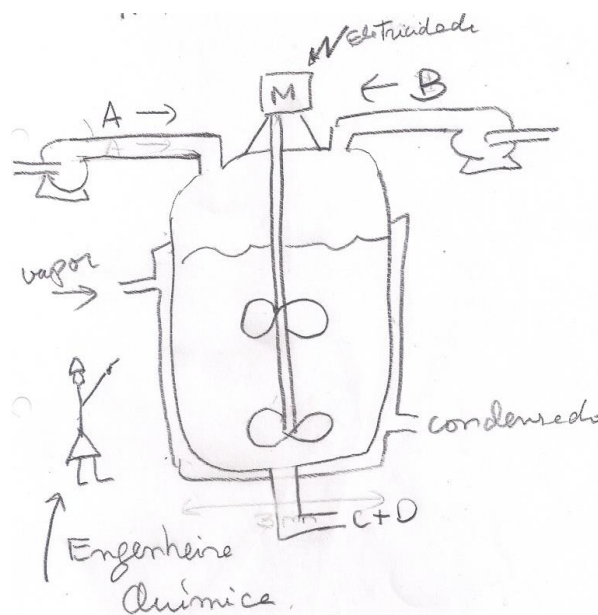 Eletricidade
M
A →
← B
A →
vapor
condensado
C+D
Engenheira
Química